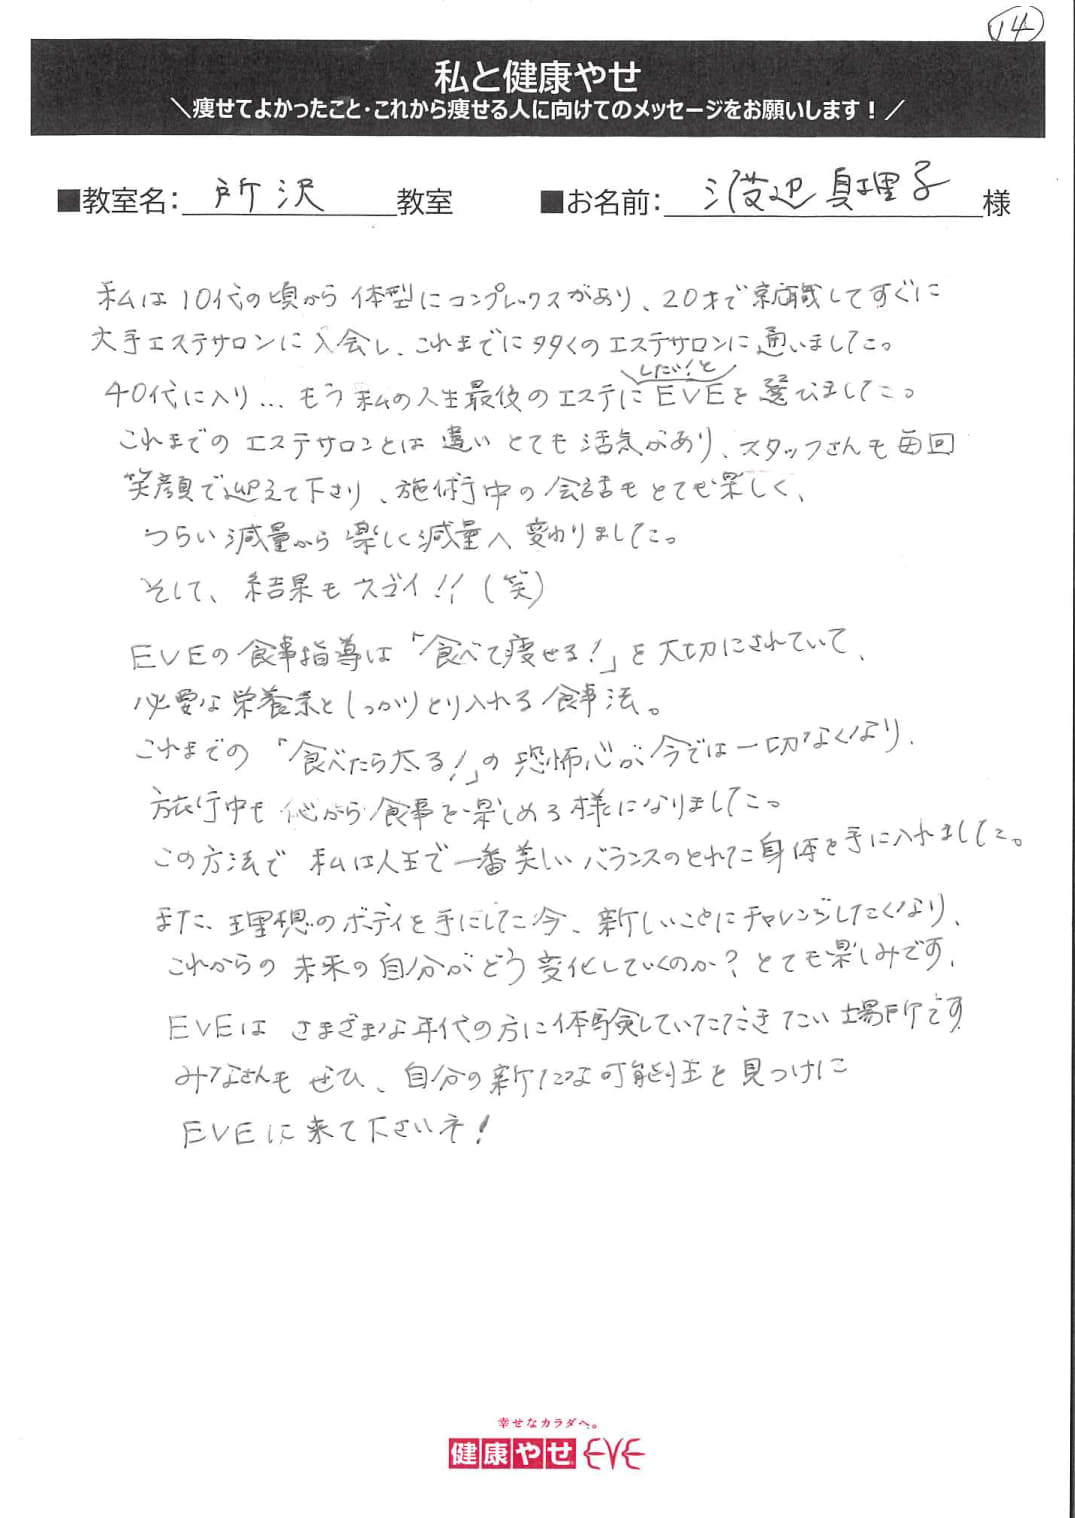 14
私と健康やせ
＼痩せてよかったこと・これから痩せる人に向けてのメッセージをお願いします！／
■教室名: 所沢 教室 ■お名前: 渡辺真理子 様
私は10代の頃から体型にコンプレックスがあり、20才で就職してすぐに
大手エステサロンに入会し、これまでに多くのエステサロンに通いました。
したい！と
40代に入り...もう私の人生最後のエステにEVEを選びました。
これまでのエステサロンとは違いとても活気があり、スタッフさんも毎回
笑顔で迎えて下さり、施術中の会話もとても楽しく、
つらい減量から楽しく減量へ変わりました。
そして、結果もスゴイ!!(笑)
EVEの食事指導は「食べて痩せる!」を大切にされていて、
必要な栄養素をしっかりとり入れる食事法。
これまでの「食べたら太る!」の恐怖心が今では一切なくなり、
旅行中も心から食事を楽しめる様になりました。
この方法で私は人生で一番美しいバランスのとれた身体を手に入れました。
また、理想のボディを手にした今、新しいことにチャレンジしたくなり、
これからの未来の自分がどう変化していくのか?とても楽しみです。
EVEはさまざまな年代の方に体験していただきたい場所です
みなさんもぜひ、自分の新たな可能性を見つけに
EVEに来て下さいネ!
幸せなカラダへ。
健康やせ EVE